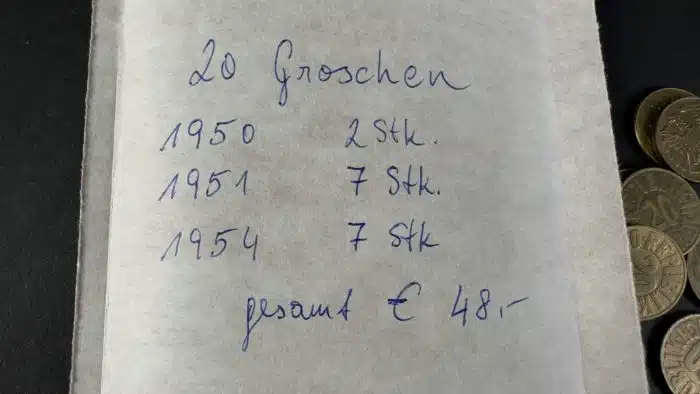 20 Groschen
1950 2 Stk.
1951 7 Stk.
1954 7 Stk
gesamt € 48,-
20